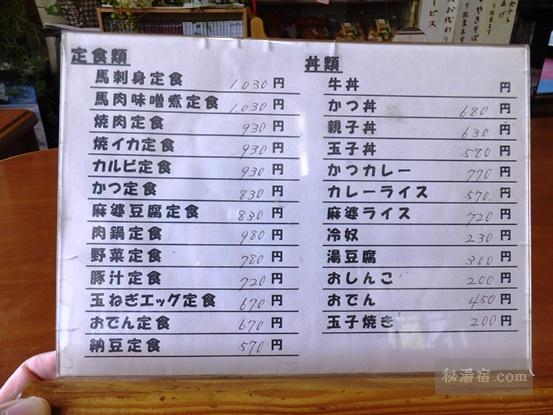 定食類
馬刺身定食 1,030円
馬肉味噌煮定食 1,030円
焼肉定食 930円
焼イカ定食 930円
カルビ定食 930円
かつ定食 830円
麻婆豆腐定食 830円
肉鍋定食 980円
野菜定食 780円
豚汁定食 720円
玉ねぎエッグ定食 670円
おでん定食 670円
納豆定食 570円
丼類
牛丼 円
かつ丼 680円
親子丼 630円
玉子丼 580円
かつカレー 770円
カレーライス 570円
麻婆ライス 720円
冷奴 230円
湯豆腐 300円
おしんこ 200円
おでん 450円
玉子焼き 200円
秘湯宿.com